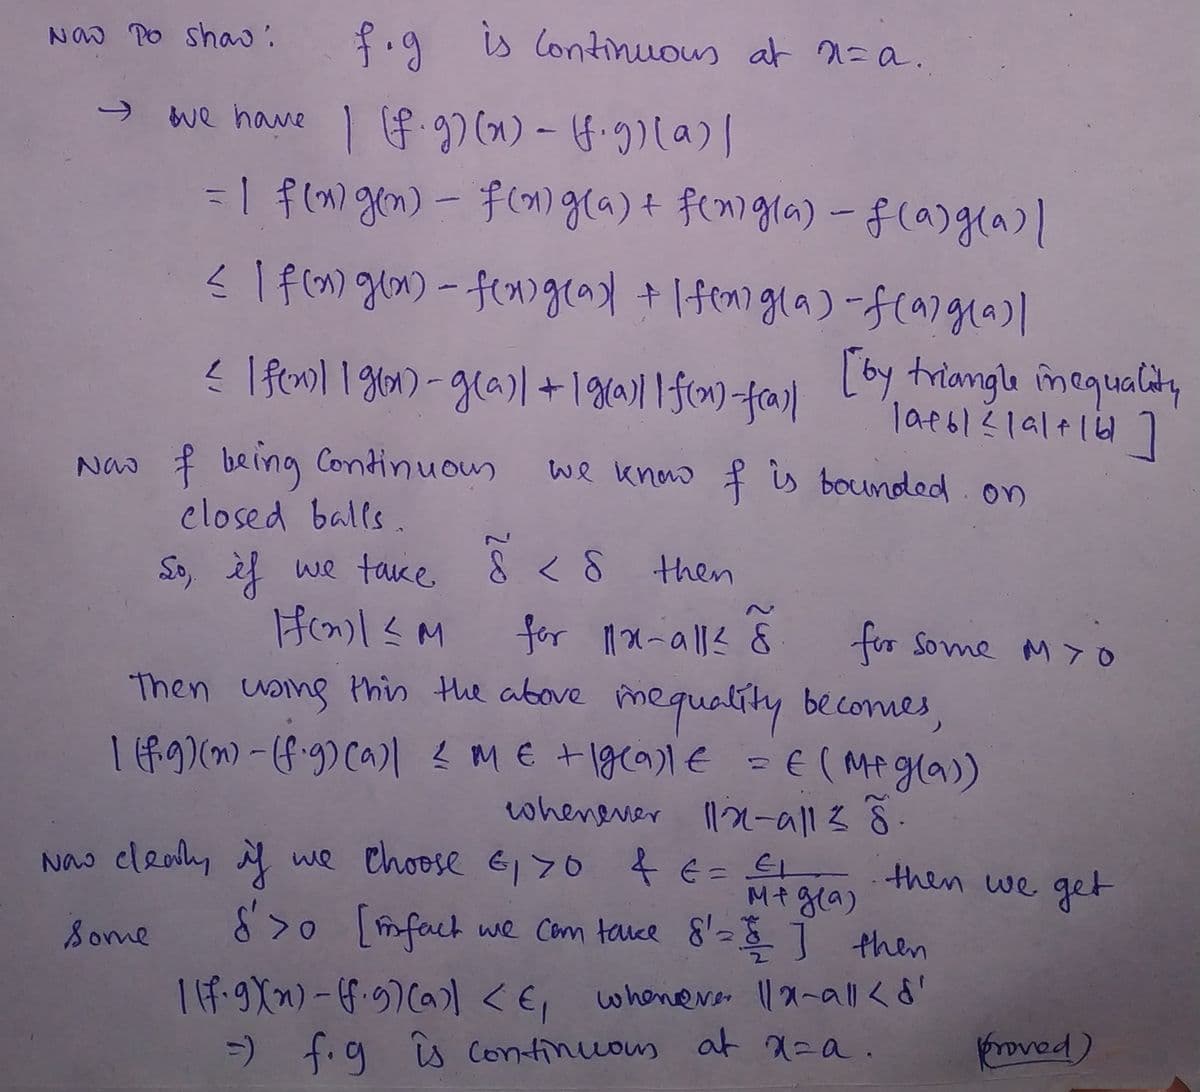 Now To show: f.g is continuous at x=a.
→ we have | (f.g)(x) - (f.g)(a)|
= | f(x)g(x) - f(x)g(a) + f(x)g(a) - f(a)g(a)|
≤ | f(x)g(x) - f(x)g(a)| + |f(x)g(a) - f(a)g(a)|
≤ |f(x)| |g(x) - g(a)| + |g(a)| |f(x) - f(a)| [by triangle inequality
|a+b| ≤ |a|+|b| ]
Now f being Continuous we know f is bounded on
closed balls.
So, if we take δ̃ < δ then
|f(x)| ≤ M for ||x-a|| ≤ δ̃. for some M > 0
Then using this the above inequality becomes,
| (f.g)(x) - (f.g)(a)| ≤ M ε + |g(a)| ε = ε (M+g(a))
whenever ||x-a|| ≤ δ̃.
Now clearly if we choose ε₁ > 0 & ε = ε₁/(M+g(a)) then we get
some δ' > 0 [infact we can take δ' = δ̃/2 ] then
|(f.g)(x) - (f.g)(a)| < ε₁ whenever ||x-a|| < δ'
⇒ f.g is continuous at x=a. (proved)